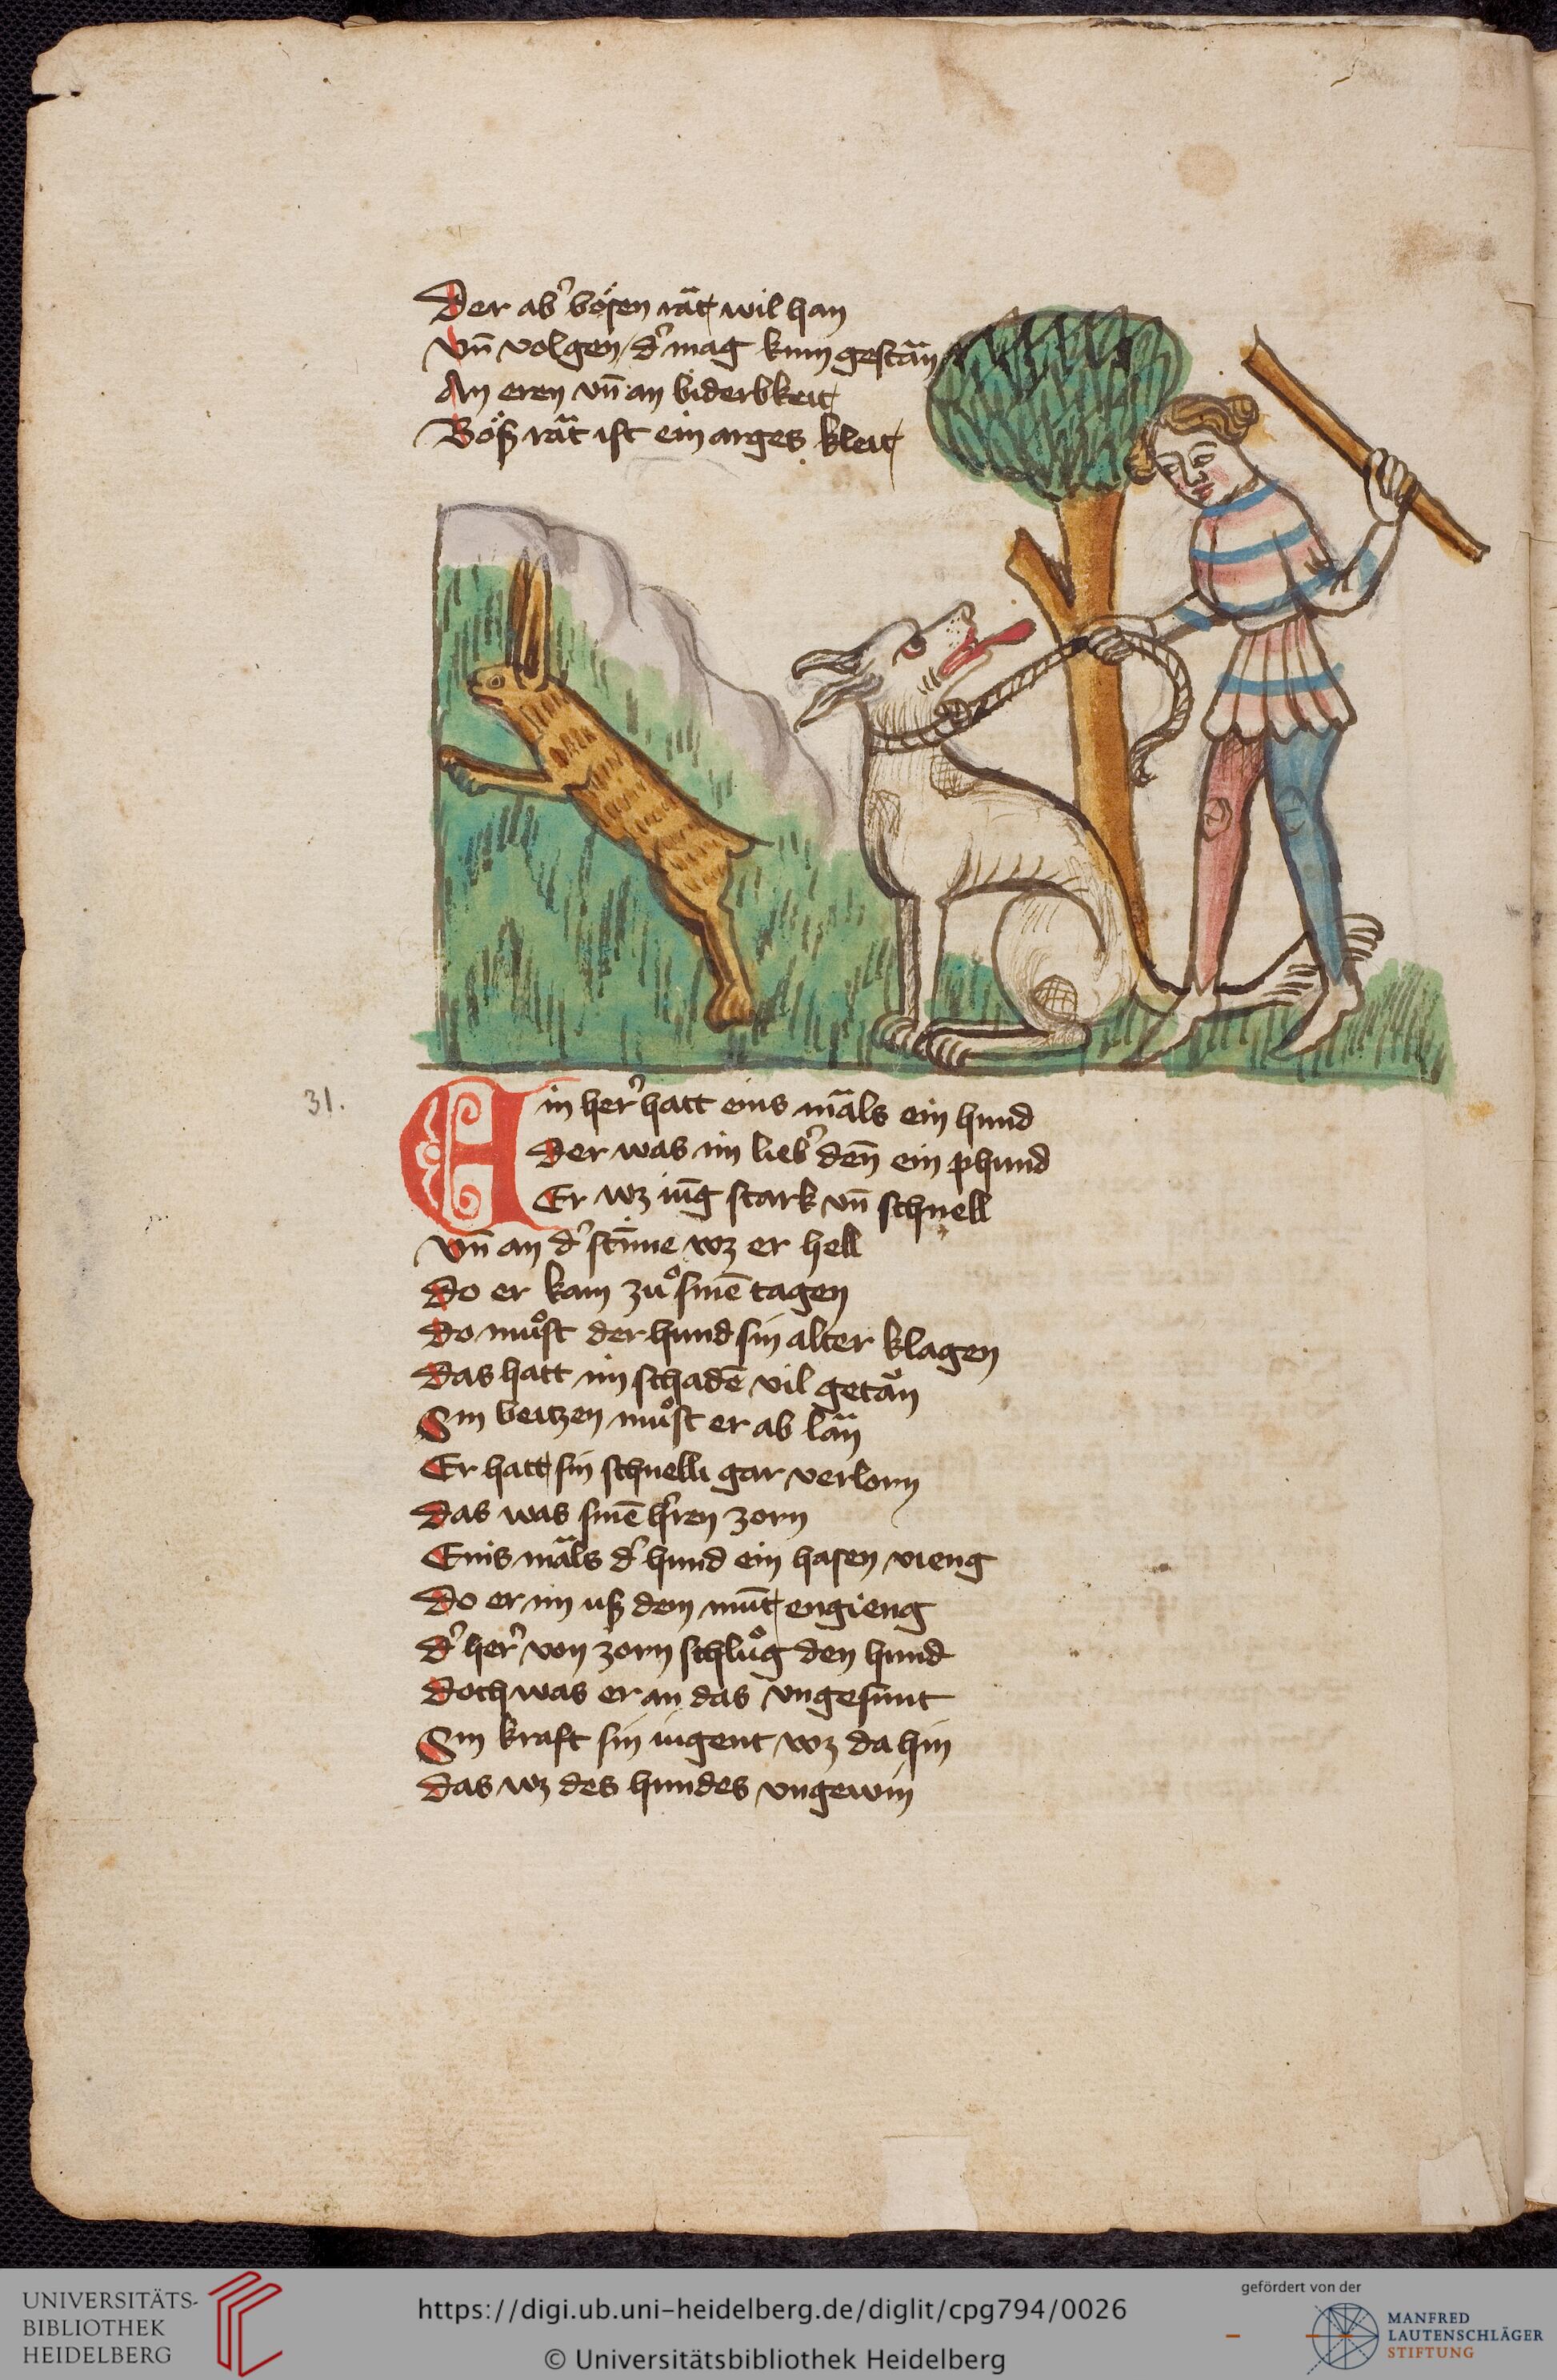 Der ab' bösen rät wil han
Vn̄ volgen / d' mag kum gestän
An eren vn̄ an biderbkeit
Böß rät ist ein arges kleit
31.
Ain her' hatt eins mäls ein hund
Der was im lieb' den̄ ein phund
Er wz iūg stark vn̄ schnell
Vn̄ an d' stīme wz er hell
Do er kam zuͦ sinē tagen
Do muͦst der hund sin alter klagen
Das hatt im schadē vil getän
Sin beitzen muͦst er ab län
Er hatt sin schnelli gar verlorn
Das was sinē h'ren zorn
Eins mäls d' hund ein hasen vieng
Do er im uß dem mūt engieng
D' her' von zorn schluͦg den hund
Doch was er an das vngesunt
Sin kraft sin iugent wz da hin
Das wz des hundes vngewin
UNIVERSITÄTS-
BIBLIOTHEK
HEIDELBERG
https://digi.ub.uni-heidelberg.de/diglit/cpg794/0026
© Universitätsbibliothek Heidelberg
gefördert von der
MANFRED
LAUTENSCHLÄGER
STIFTUNG